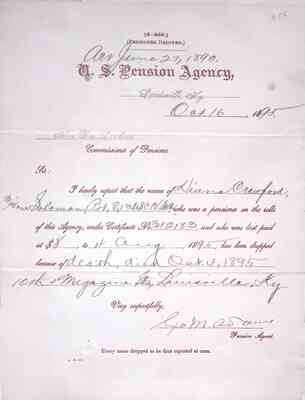 (PENSIONER DROPPED.)
Act June 27, 1890.
U. S. Pension Agency,
Louisville, Ky
Oct 16, 1895
Commissioner of Pensions.
Sir:
I hereby report that the name of Diana Crawford,
Solomon, who was a pensioner on the rolls
of this Agency, under Certificate No. 312183 and who was last paid
at $8, to 4 Aug, 1895, has been dropped
because of death, died Oct. 4, 1895
10th & Magazine Sts, Louisville, Ky
Very respectfully,
Geo M. Adams
Pension Agent.
Every name dropped to be thus reported at once.